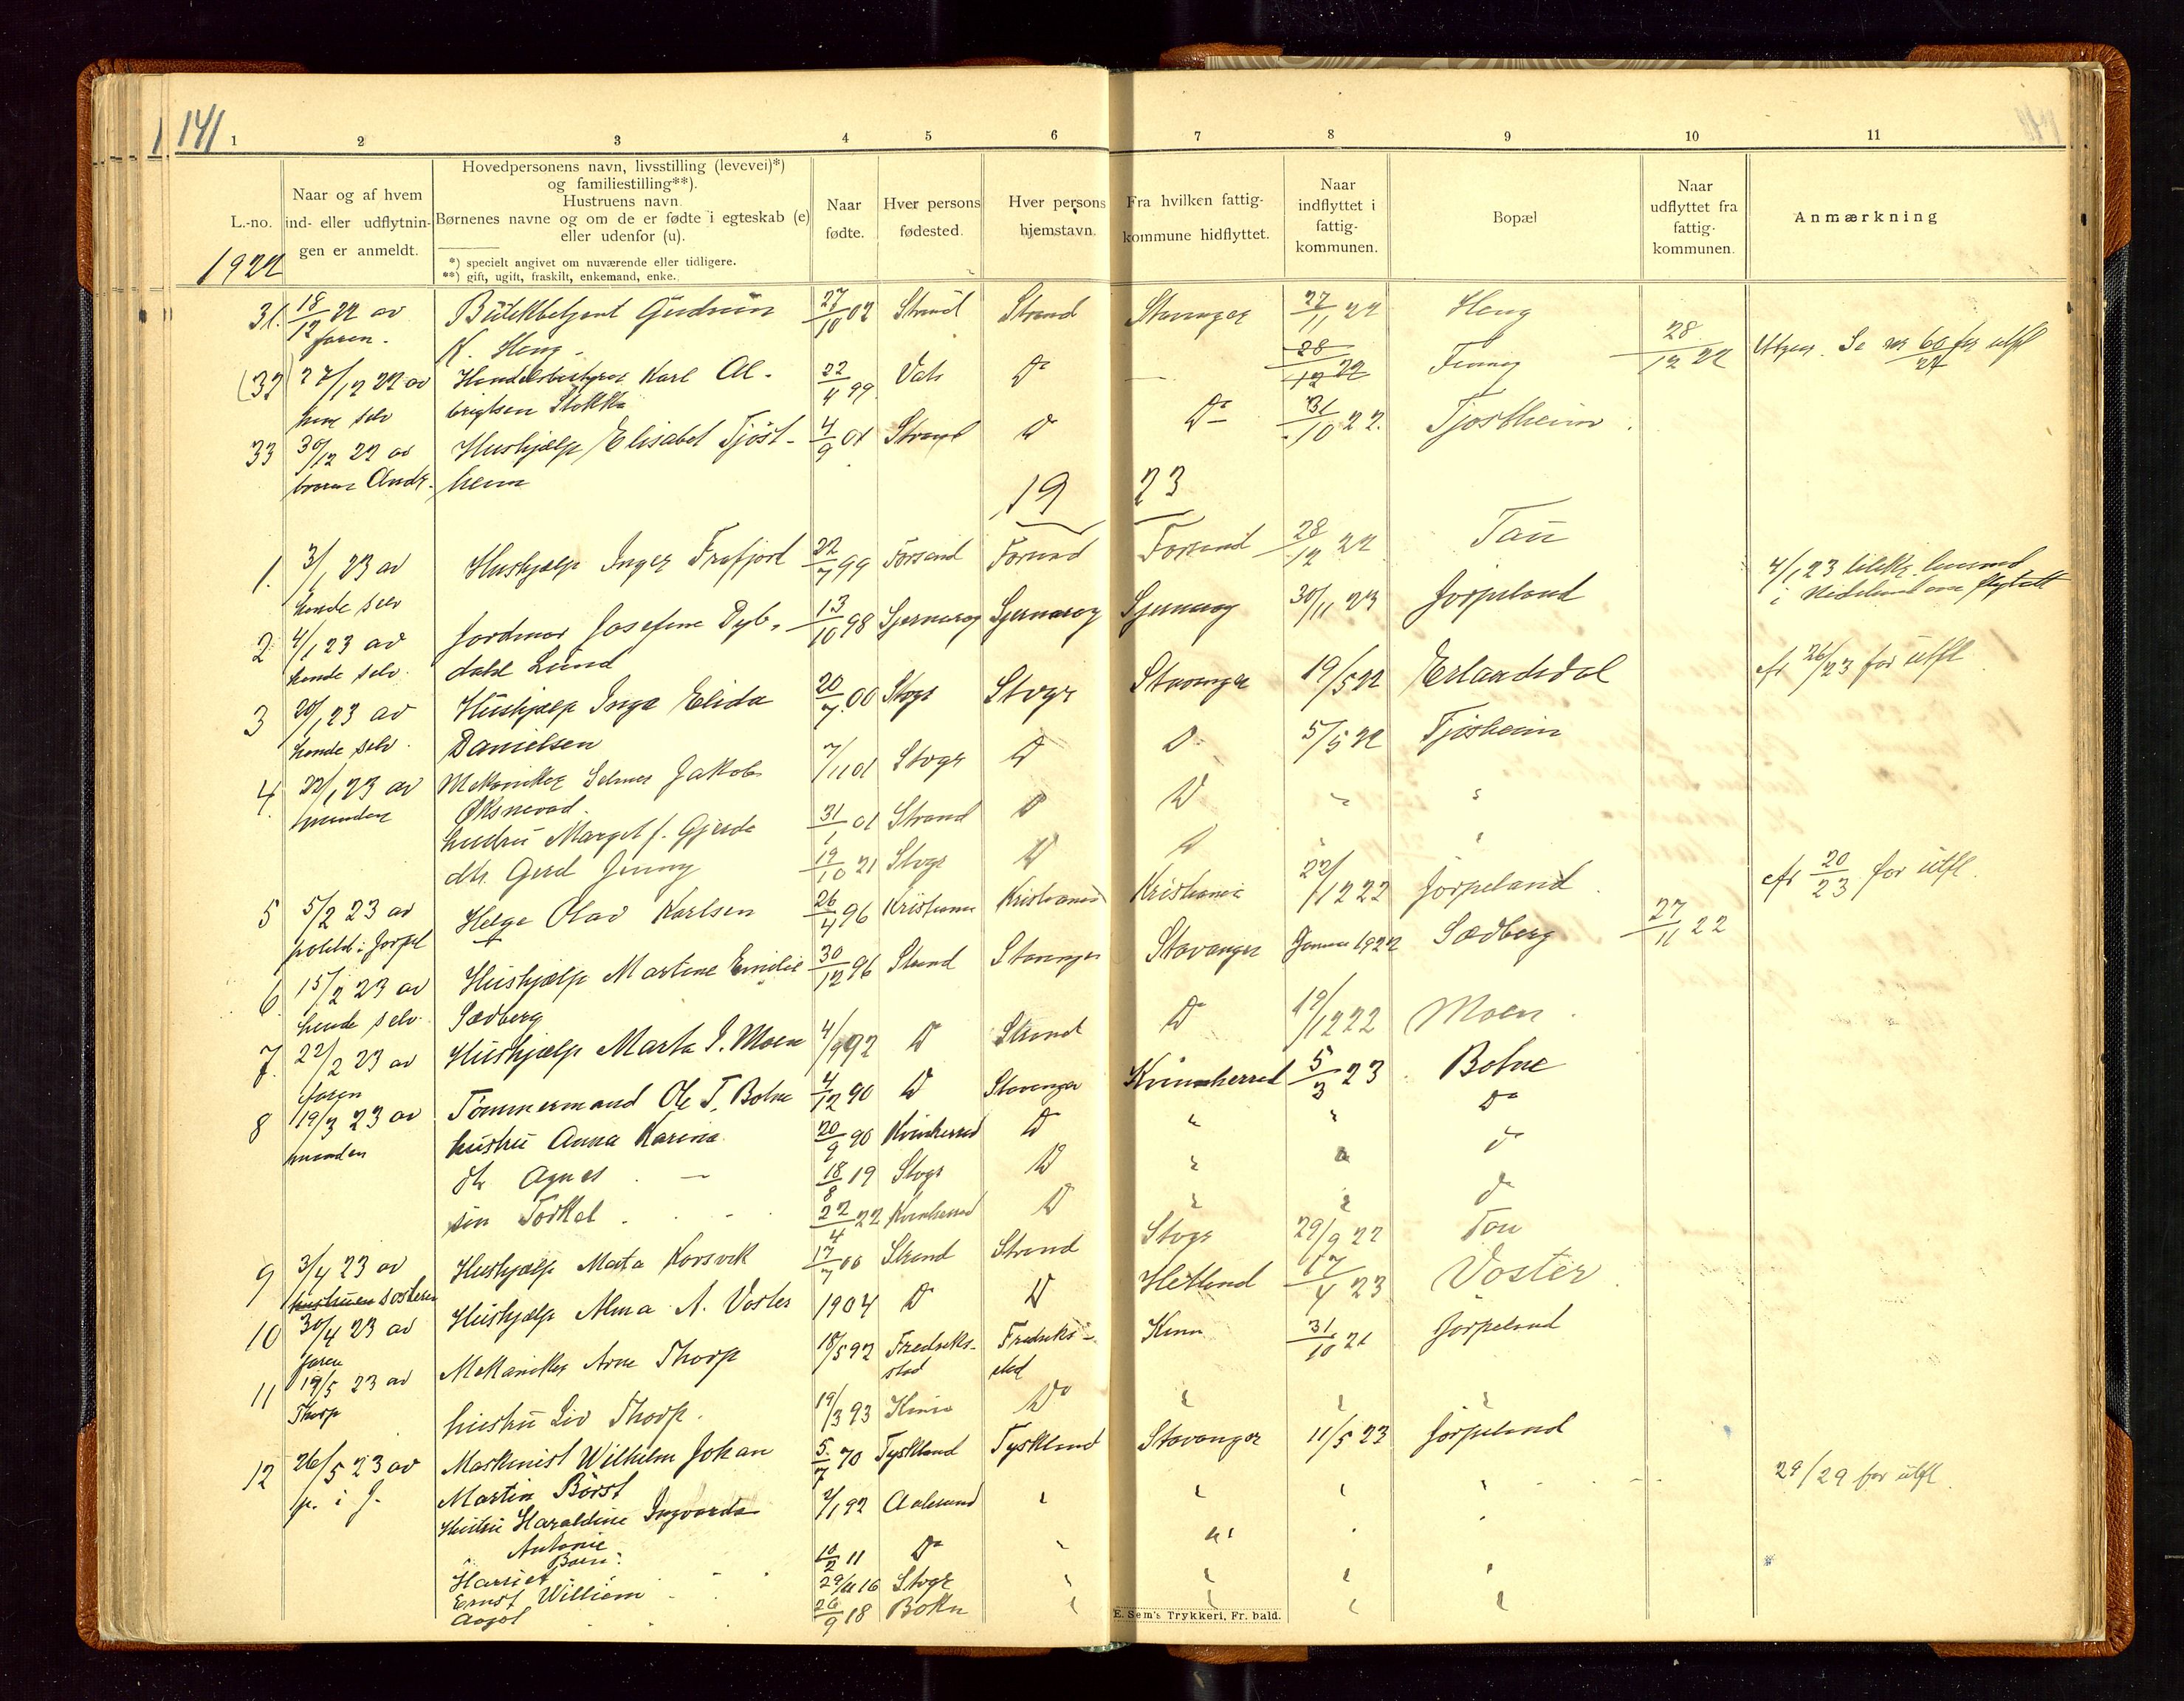 141
1 2 3 4 5 6 7 8 9 10 11
L.-no.
1922
Naar og af hvem
ind- eller udflytnin-
gen er anmeldt.
Hovedpersonens navn, livsstilling (levevei)*)
og familiestilling**).
Hustruens navn.
Børnenes navne og om de er fødte i egteskab (e)
eller udenfor (u).
*) specielt angivet om nuværende eller tidligere.
**) gift, ugift, fraskilt, enkemand, enke.
Naar
fødte.
Hver persons
fødested.
Hver persons
hjemstavn.
Fra hvilken fattig-
kommune hidflyttet.
Naar
indflyttet i
fattig-
kommunen.
Bopæl
Naar
udflyttet fra
fattig-
kommunen.
Anmærkning
31. 18/12 22 av Butikbetjent Gudrun 27/10 02 Strand Strand Stavanger 27/11 22 Heng
faren. K. Heng
(32) 27/12 22 av Handelsbestyrer Karl Al- 22/4 99 Vats Do — 28/12 22 28/12 22 Se nr 60/24 for utfl
ham selv brigtsen Stokka
33 30/12 22 av Hushjælp Elisabet Tjøst- 4/9 01 Strand Do Do 31/10 22. Tjøstheim
broren Andr. heim
1923
1. 3/1 23 av Hushjælp Inger Frafjord 22/7 99 Forsand Forsand Forsand 28/12 22 Tau
hende selv
2 4/1 23 av Jordmor Josefine Dyb- 13/10 98 Sjernarøy Sjernarøy Sjernarøy 30/11 23 Jørpeland 4/1 23
hende selv. dahl Lund
3 20/1 23 av Hushjælp Inga Elida 20/7 00 Stvgr Stvgr Stavanger 19/5 22 Erlandsdal cfr 26/23 for utfl
hende selv. Danielsen
4. 22/1 23 av Mekaniker Selmer Jakob 7/11 01 Stvgr Do Do 5/5 22 Tjøsheim
manden Øksnevad
hustru Margit f. Gjerde 31/1 01 Strand Do Do " "
dtr. Gerd Jenny 19/10 21 Stvgr Do Do " "
5 5/2 23 av Helge Olav Karlsen 26/4 96 Kristiania Kristiania Kristiania 22/12 22 Jørpeland cfr 20/23 for utfl.
politib. i Jørpel
6 15/2 23 av Hushjælp Martine Emilie 30/12 96 Strand Stavanger Stavanger Januar 1922 Sædberg 27/11 22
hende selv. Sædberg
7. 22/2 23 av Hushjælp Marta I. Moen 4/9 92 Do Strand Do 19/12 22 Moen
faren
8 19/3 23 av Tømmermand Ole T. Botne 4/12 90 Do Stavanger Kvinnherred 5/3 23 Botne
manden hustru Anna Karina 20/9 90 Kvinherred Do " " Do
dtr Agnes — 18/8 19 Stvgr Do " " Do
søn Torkel 22/4 22 Kvinherred Do " " Do
9 3/4 23 av Hushjælp Marta Korsvik 17/7 00 Strand Strand Stvgr 29/9 22 Tau
hustruen søsteren
10 30/4 23 av Hushjælp Alma A. Voster 1904 Do Do Hetland 17/4 23 Voster
faren
11 19/5 23 av Mekaniker Arne Thorp 18/5 92 Fredriks- Fredriks- Kinn 31/10 21 Jørpeland
Thorp stad stad
hustru Liv Thorp. 19/3 93 Kinn Do " " "
12 26/5 23 av Maskinist Wilhelm Johan 5/7 70 Tyskland Tyskland Stavanger 11/5 23 Jørpeland
p. i J. Martin Börst 29/29 for utfl.
Hustru Haraldine Ingvarda 2/1 92 Aalesund " " " "
Antonie
Barn:
Harriet 10/2 11 Do " "
Ernst William 29/11 16 Stvgr " " " "
Aagot 26/9 18 Bokn " " " "
E. Sem's Trykkeri, Fr. hald.